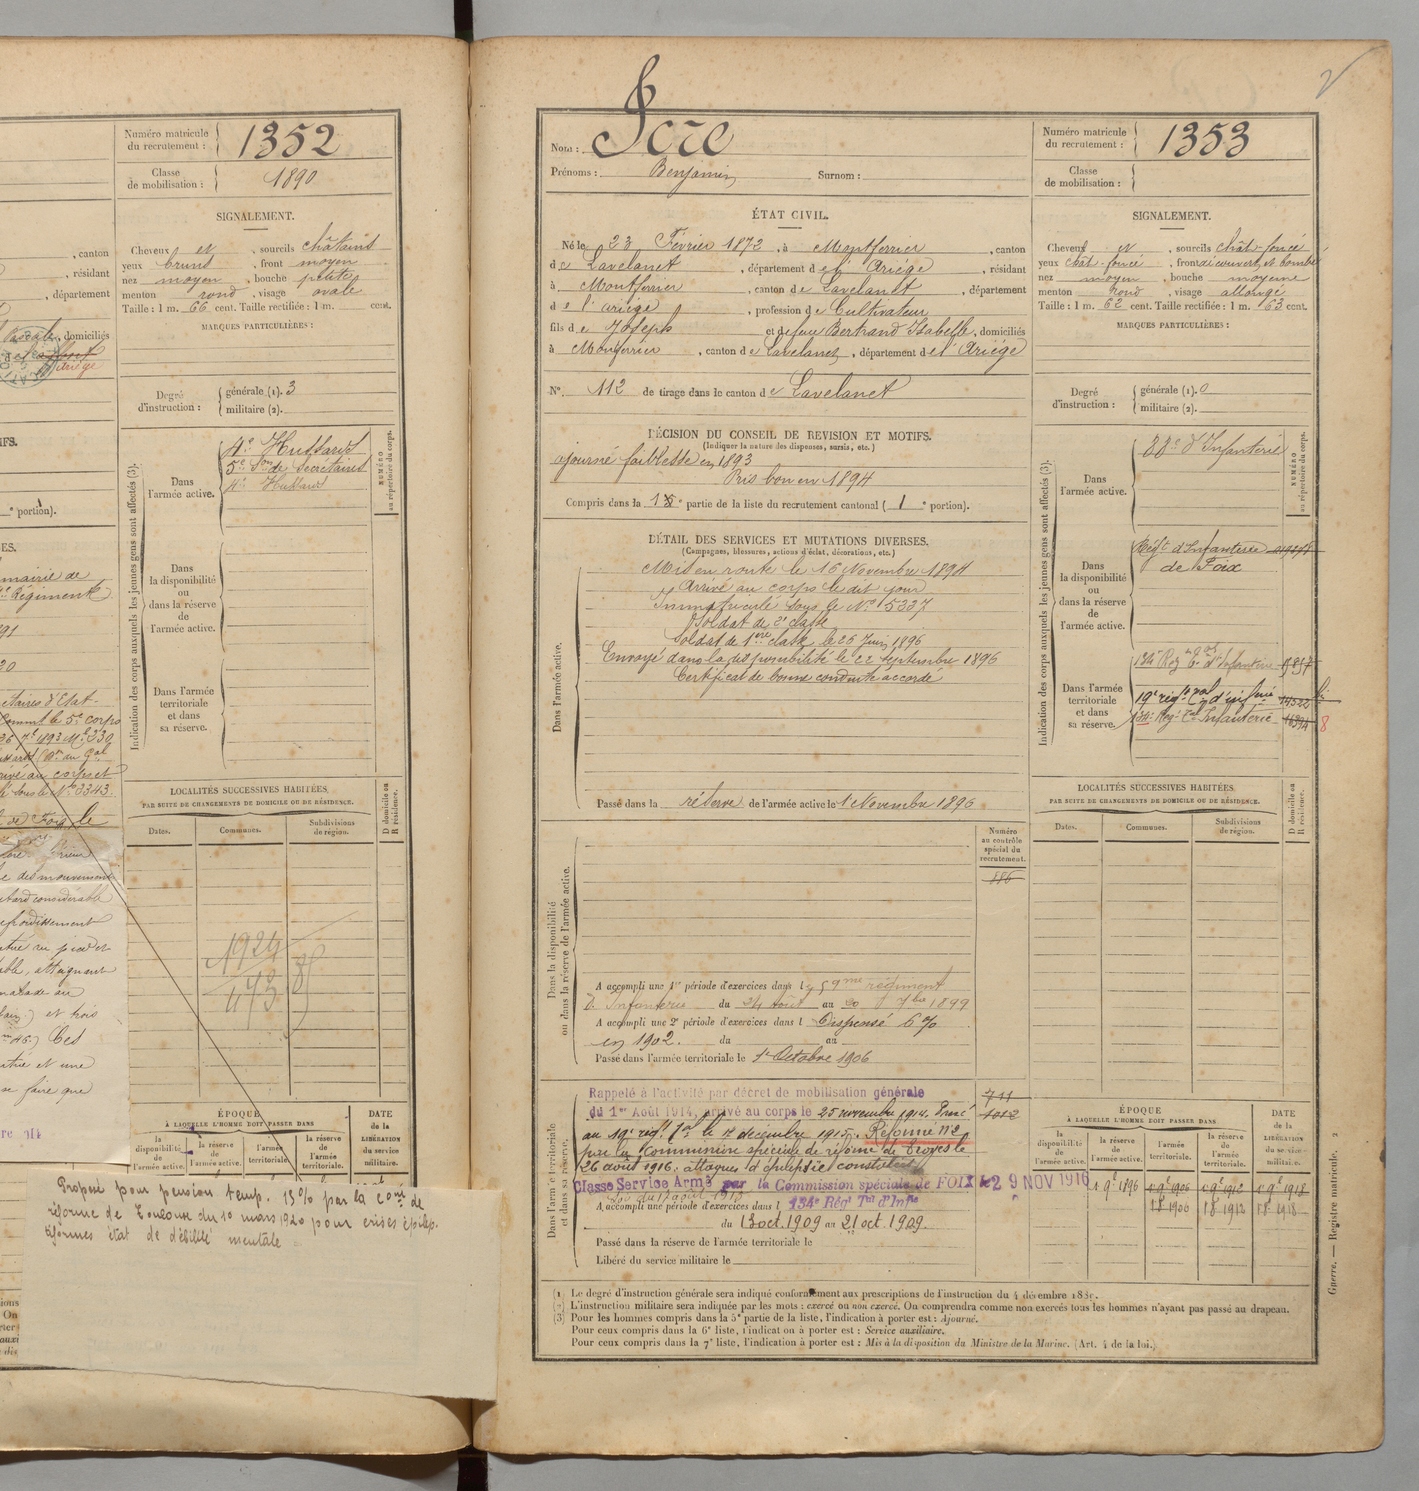 Numéro matricule
du recrutement :
1352
Classe
de mobilisation :
1890
SIGNALEMENT.
Cheveux et , sourcils châtains
yeux bruns , front moyen
nez moyen , bouche petite
menton rond , visage ovale
Taille : 1 m. 66 cent. Taille rectifiée : 1 m. cent.
MARQUES PARTICULIÈRES :
, canton
, résidant
, département
, domiciliés
Ariège
Degré
d'instruction :
générale (1). 3
militaire (2).
Indication des corps auxquels les jeunes gens sont affectés (3).
Dans
l'armée active.
4e Hussards
5e Son de Secrétaires
4e Hussards
NUMÉRO
au répertoire du corps.
e portion).
Dans
la disponibilité
ou
dans la réserve
de
l'armée active.
mairie de
Régiment
Dans l'armée
territoriale
et dans
sa réserve.
LOCALITÉS SUCCESSIVES HABITÉES
PAR SUITE DE CHANGEMENTS DE DOMICILE OU DE RÉSIDENCE.
Dates.
Communes.
Subdivisions
de région.
D domicile ou
R résidence.
1924
473
85
ÉPOQUE
À LAQUELLE L'HOMME DOIT PASSER DANS
la
disponibilité
de
l'armée active.
la réserve
de
l'armée active.
l'armée
territoriale.
la réserve
de
l'armée
territoriale.
DATE
de la
LIBÉRATION
du service
militaire.
Proposé pour pension temp. 15% par la Come de
réforme de Toulouse du 10 mars 1920 pour crises épilep.
tiformes état de débilité mentale
Nom : Icre
Prénoms : Benjamin Surnom :
ÉTAT CIVIL.
Né le 23 Février 1872, à Montferrier , canton
de Lavelanet , département de l'Ariège , résidant
à Montferrier , canton de Lavelanet , département
de l'ariège , profession de Cultivateur
fils de Joseph et de feue Bertrand Isabelle, domiciliés
à Montferrier , canton de Lavelanet , département de l'Ariège
N° 112 de tirage dans le canton de Lavelanet
DÉCISION DU CONSEIL DE REVISION ET MOTIFS.
(Indiquer la nature des dispenses, sursis, etc.)
ajourné faiblesse en 1893
Pris bon en 1894
Compris dans la 1e partie de la liste du recrutement cantonal ( 1 e portion).
DÉTAIL DES SERVICES ET MUTATIONS DIVERSES.
(Campagnes, blessures, actions d'éclat, décorations, etc.)
Dans l'armée active.
Mis en route le 16 Novembre 1894
Arrivé au corps le dit jour
Immatriculé sous le N° 5337
Soldat de 2e classe
Soldat de 1ère classe le 25 Juin 1896
Envoyé dans la disponibilité le 22 septembre 1896
Certificat de bonne conduite accordé
Passé dans la réserve de l'armée active le 1 Novembre 1896
Numéro
au contrôle
spécial du
recrutement.
Dans la disponibilité
ou dans la réserve de l'armée active.
A accompli une 1re période d'exercices dans le 59me régiment
d'Infanterie du 24 août au 20 7bre 1899
A accompli une 2e période d'exercices dans l Dispensé 6%
en 1902. du au
Passé dans l'armée territoriale le 1er Octobre 1906
Dans l'armée territoriale
et dans sa réserve.
Rappelé à l'activité par décret de mobilisation générale
du 1er Août 1914, arrivé au corps le 25 novembre 1914. Passé
711
1012
au 19e régt Tal le 12 décembre 1915. Réformé n°2
par la Commission spéciale de réforme de Troyes le
26 août 1916. attaques d'épilepsie constatées
Classé Service Armé par la Commission spéciale de FOIX le 29 NOV 1916
Loi du 17 août 1915
A accompli une période d'exercices dans l 134e Régt Tal d'Infie
du 13 oct. 1909 au 21 oct. 1909.
Passé dans la réserve de l'armée territoriale le
Libéré du service militaire le
Numéro matricule
du recrutement :
1353
Classe
de mobilisation :
SIGNALEMENT.
Cheveux et , sourcils chât-foncé
yeux chât-foncé , front découvert et bombé
nez moyen , bouche moyenne
menton rond , visage allongé
Taille : 1 m. 62 cent. Taille rectifiée : 1 m. 63 cent.
MARQUES PARTICULIÈRES :
Degré
d'instruction :
générale (1). 0
militaire (2).
Indication des corps auxquels les jeunes gens sont affectés (3).
Dans
l'armée active.
88e d'Infanterie
NUMÉRO
au répertoire du corps.
Dans
la disponibilité
ou
dans la réserve
de
l'armée active.
Régt d'Infanterie
de Foix
Dans l'armée
territoriale
et dans
sa réserve.
134e Reg Tal d'Infanterie
19e régt Tal d'infrie
134e Reg. Tal Infanterie
8
LOCALITÉS SUCCESSIVES HABITÉES
PAR SUITE DE CHANGEMENTS DE DOMICILE OU DE RÉSIDENCE.
Dates.
Communes.
Subdivisions
de région.
D domicile ou
R résidence.
ÉPOQUE
À LAQUELLE L'HOMME DOIT PASSER DANS
la
disponibilité
de
l'armée active.
la réserve
de
l'armée active.
l'armée
territoriale.
la réserve
de
l'armée
territoriale.
DATE
de la
LIBÉRATION
du service
militaire.
1 9e 1896 1 9e 1906 1 9e 1912 1 9e 1918
1 8 1906 1 8 1912 1 8 1918
(1) Le degré d'instruction générale sera indiqué conformément aux prescriptions de l'instruction du 4 décembre 1889.
(2) L'instruction militaire sera indiquée par les mots : exercé ou non exercé. On comprendra comme non exercés tous les hommes n'ayant pas passé au drapeau.
(3) Pour les hommes compris dans la 5e partie de la liste, l'indication à porter est : Ajourné.
Pour ceux compris dans la 6e liste, l'indication à porter est : Service auxiliaire.
Pour ceux compris dans la 7e liste, l'indication à porter est : Mis à la disposition du Ministre de la Marine. (Art. 4 de la loi.)
Guerre. — Registre matricule.